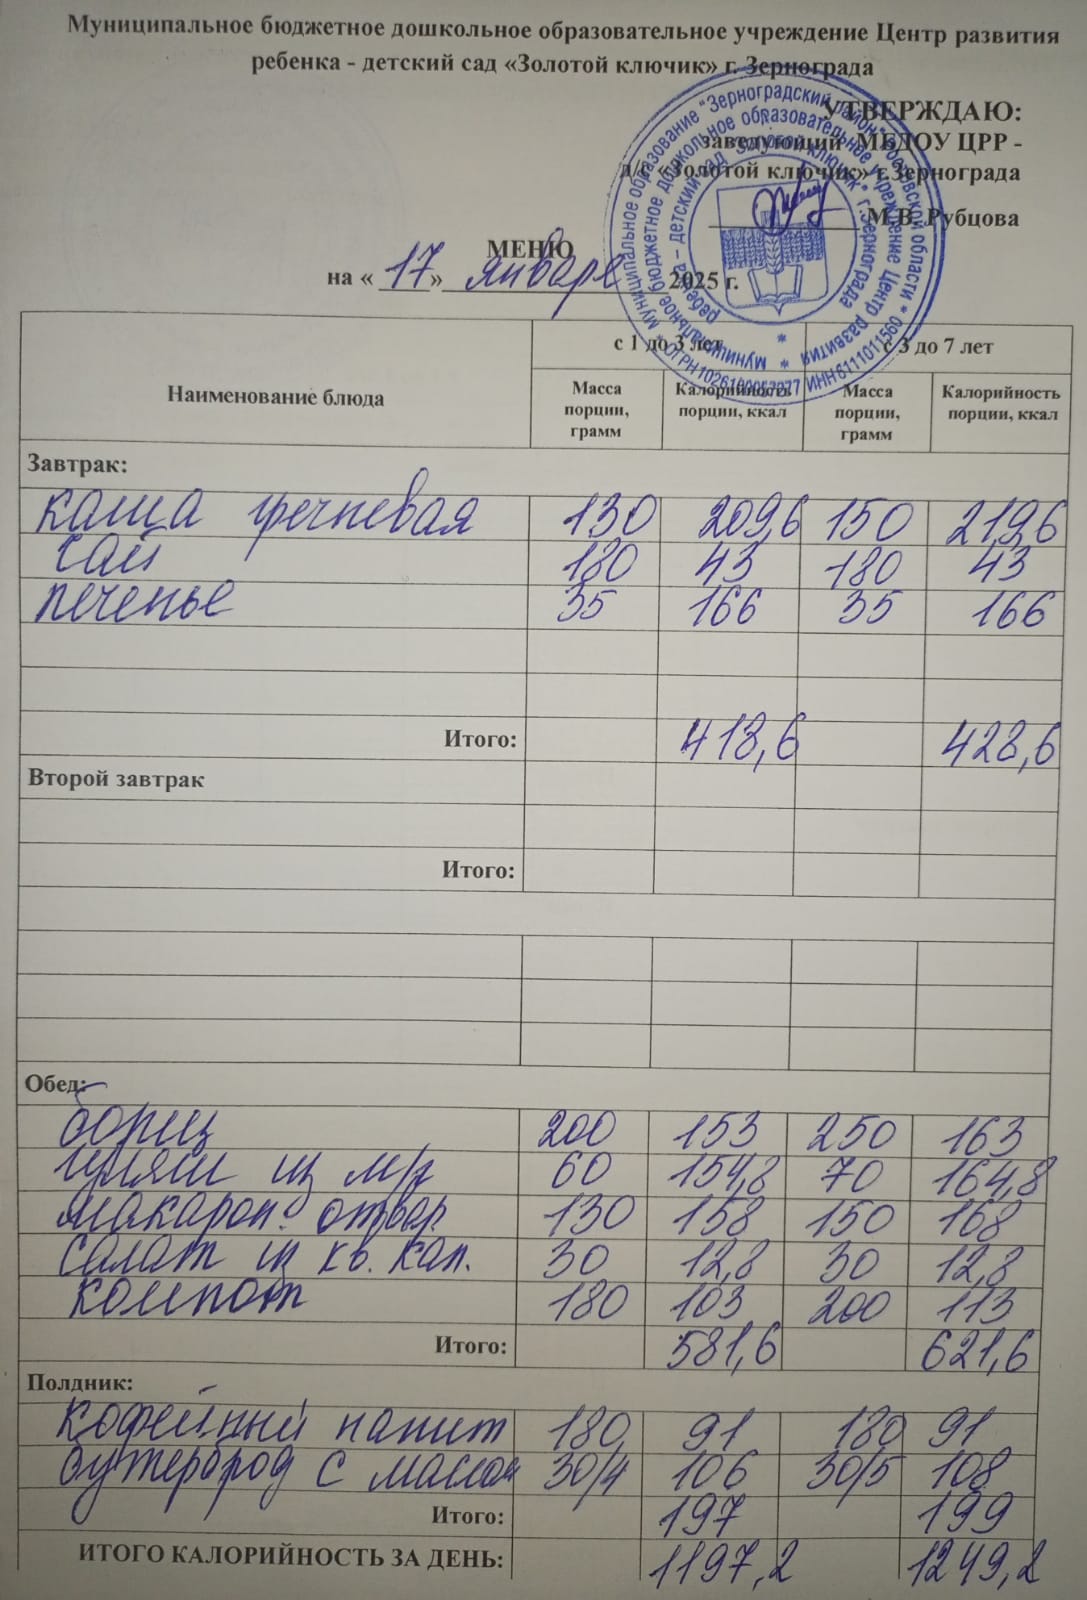 Муниципальное бюджетное дошкольное образовательное учреждение Центр развития
ребенка - детский сад «Золотой ключик» г. Зернограда
УТВЕРЖДАЮ:
заведующий МБДОУ ЦРР -
д/с «Золотой ключик» г.Зернограда
М.В. Рубцова
МЕНЮ
на « 17 » января 2025 г.
Наименование блюда
с 1 до 3 лет с 3 до 7 лет
Масса порции, грамм Калорийность порции, ккал Масса порции, грамм Калорийность порции, ккал
Завтрак:
каша гречневая 130 209,6 150 219,6
чай 180 43 180 43
печенье 35 166 35 166
Итого: 418,6 428,6
Второй завтрак
Итого:
Обед:
борщ 200 153 250 163
гуляш из м/р 60 154,8 70 164,8
макарон. отвар 130 158 150 168
салат из кв. кап. 30 12,8 30 12,8
компот 180 103 200 113
Итого: 581,6 621,6
Полдник:
кофейный напит 180 91 180 91
бутерброд с маслом 30/4 106 30/5 108
Итого: 197 199
ИТОГО КАЛОРИЙНОСТЬ ЗА ДЕНЬ: 1197,2 1249,2